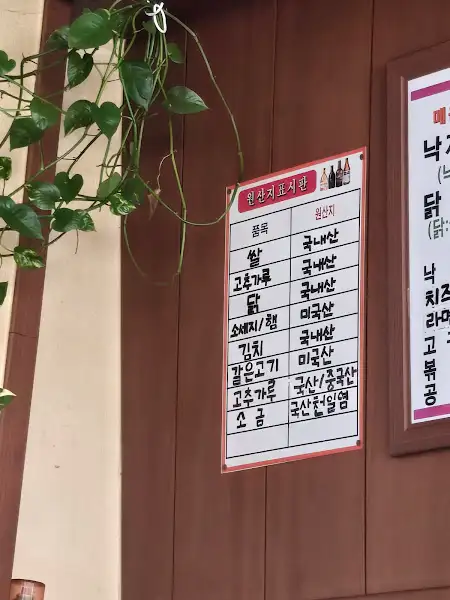 원산지표시판
품목 원산지
쌀 국내산
고추가루 국내산
닭 국내산
소세지/햄 미국산
김치 국내산
갈은고기 미국산
고추가루 국산/중국산
소금 국산천일염
메
낙
닭
(닭
낙
치즈
라면
고
볶
공